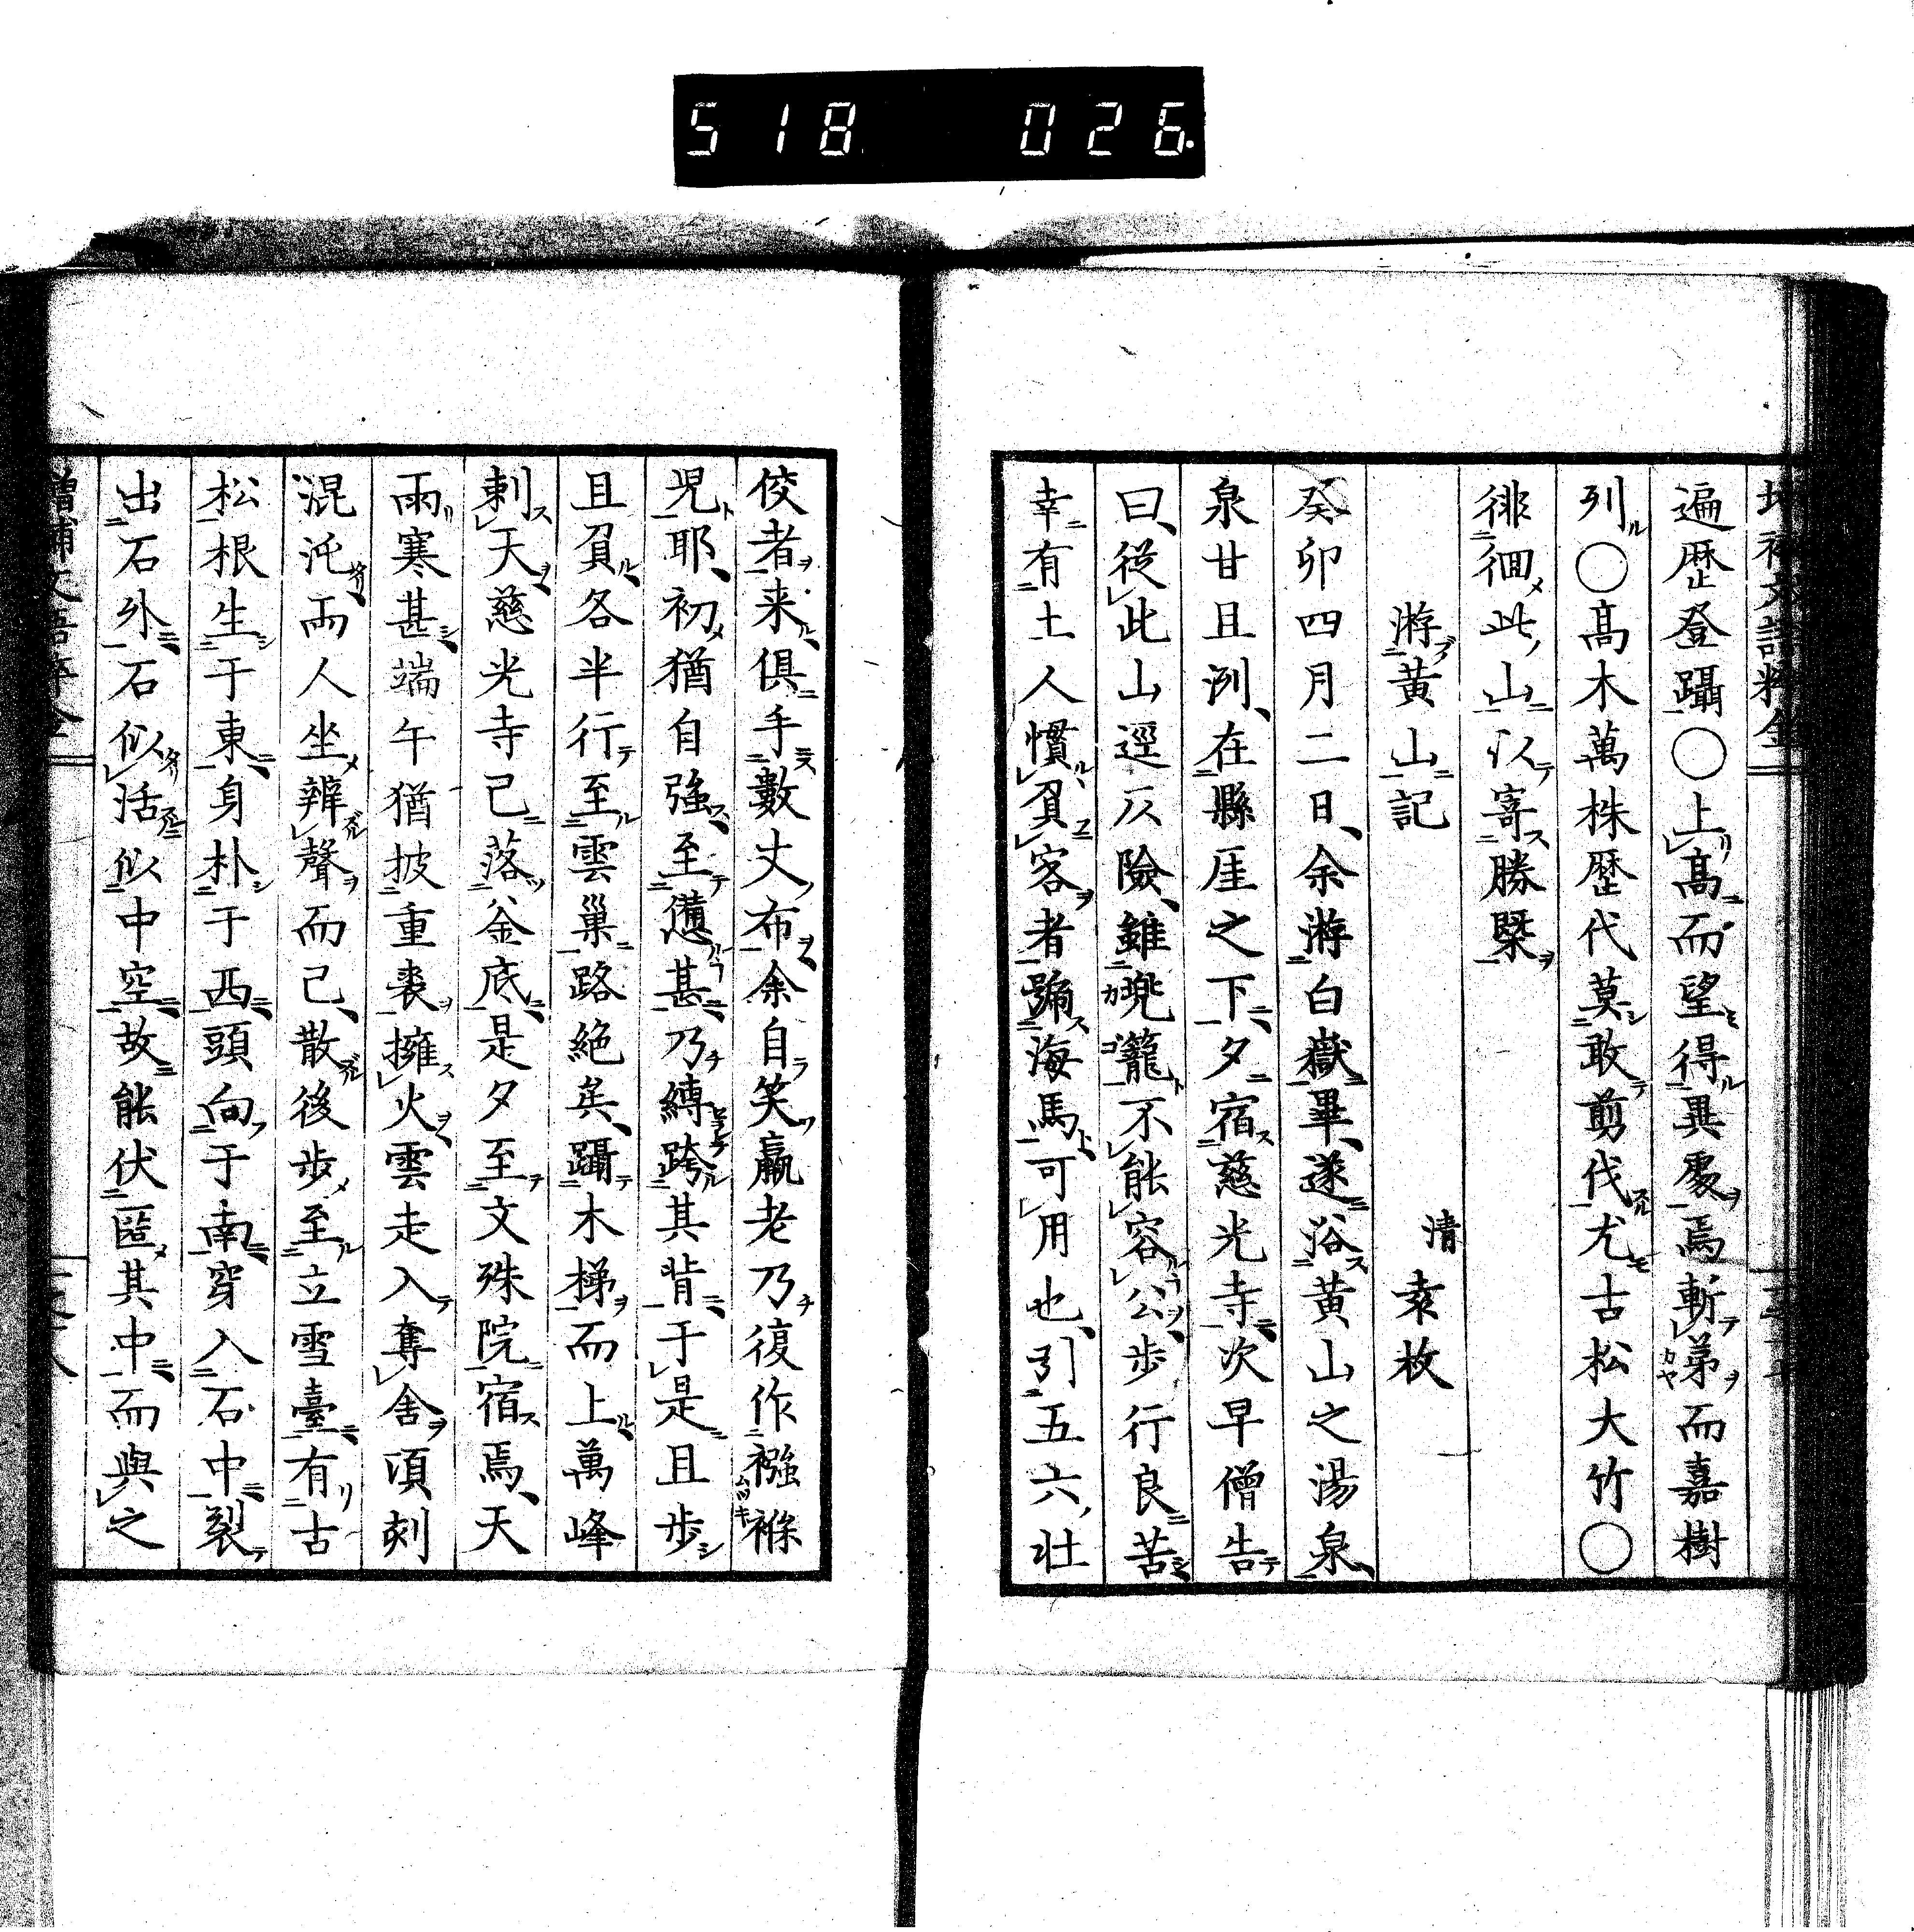 518 026
遍歴登躡◯上高而望得異処焉斬茅而嘉樹
列◯高木萬株歴代莫敢剪伐尤古松大竹◯
徘徊此山以寄勝槩
游黄山記 清 袁枚
癸卯四月二日、余游白嶽畢、遂浴黄山之湯泉、
泉甘且洌、在縣厓之下、夕宿慈光寺次早僧告
曰、従此山逕仄險、雖兜籠不能容公歩行良苦
幸有土人慣負客者號海馬可用也、引五六壮
佼者来俱手數丈布余自笑羸老乃復作襁褓
児耶、初猶自強至憊甚乃縛跨其背于是且歩
且負各半行至雲巢路絶矣、躡木梯而上萬峰
刺天慈光寺已落釜底是夕至文殊院宿焉、天
雨寒甚端午猶披重裘擁火雲走入奪舎頃刻
混沌両人坐辨聲而已、散後歩至立雪臺有古
松根生于東身朴于西頭向于南穿入石中裂
出石外石似活似中空故能伏匿其中而與之